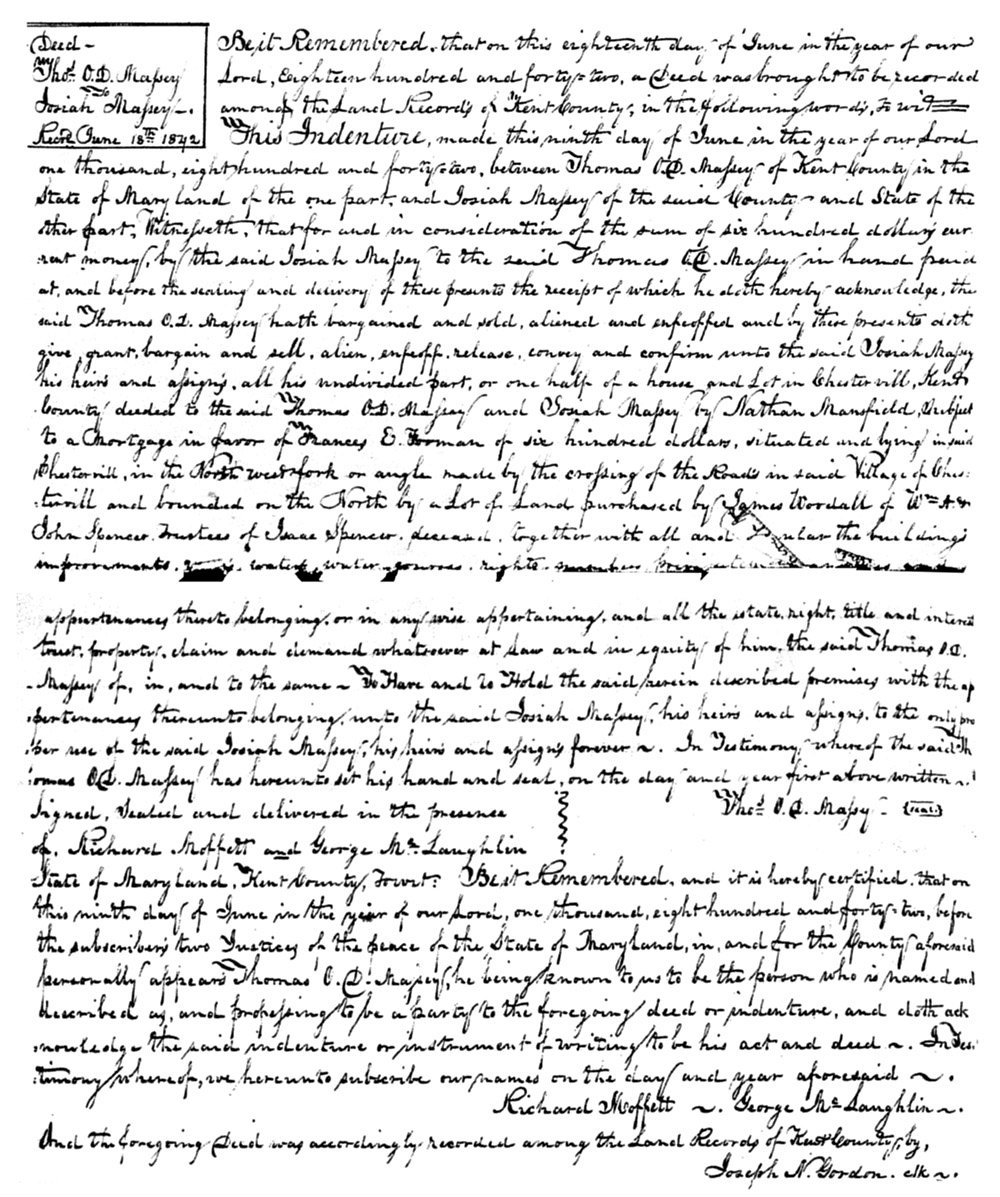 Deed –
Thos. O. D. Massey
to
Josiah Massey –.
Recd. June 18th 1842
Be it Remembered, that on this eighteenth day of June in the year of our
Lord, Eighteen hundred and forty=two, a Deed was brought to be recorded
among the Land Records of Kent County, in the following words, to wit
This Indenture, made this ninth day of June in the year of our Lord
one thousand, eight hundred and forty=two, between Thomas O.D. Massey of Kent County in the
State of Maryland of the one part, and Josiah Massey of the said County and State of the
other part, Witnesseth, that for and in consideration of the sum of six hundred dollars cur
rent money, by the said Josiah Massey to the said Thomas O.D. Massey in hand paid
at, and before the sealing and delivery of these presents the receipt of which he doth hereby acknowledge, the
said Thomas O.D. Massey hath bargained and sold, aliened and enfeoffed and by these presents doth
give, grant, bargain and sell, alien, enfeoff, release, convey and confirm unto the said Josiah Massey
his heirs and assigns, all his undivided part, or one half of a house and Lot in Chestervill, Kent
County deeded to the said Thomas O.D. Massey and Josiah Massey by Nathan Mansfield, subject
to a Mortgage in favor of Frances E. Forman of six hundred dollars, situated and lying in said
Chestervill, in the North west fork or angle made by the crossing of the Roads in said Village of Ches:
:tervill and bounded on the North by a Lot of Land purchased by James Woodall of Wm. A. &
John Spencer, Trustees of Isaac Spencer, deceased, together with all and the buildings
improvements, waters, water courses, rights, and
appurtenances thereto belonging, or in any wise appertaining, and all the estate, right, title and interest
trust, property, claim and demand whatsoever at Law and in equity of him, the said Thomas O.D.
Massey of, in, and to the same ~ To Have and to Hold the said herein described premises with the ap
:pertenances thereunto belonging, unto the said Josiah Massey, his heirs and assigns, to the only pro
:per use of the said Josiah Massey, his heirs and assigns forever ~. In Testimony whereof the said Th
:omas O.D. Massey has hereunto set his hand and seal, on the day and year first above written ~.
Signed, Sealed and delivered in the presense
Thos. O. D. Massy – (seal)
of, Richard Moffett and George Mc. Laughlin
State of Maryland, Kent County, Towit: Be it Remembered, and it is hereby certified, that on
this ninth day of June in the year of our Lord, one thousand, eight hundred and forty=two, before
the subscribers two Justices of the peace of the State of Maryland, in, and for the County aforesaid
personally appears Thomas O.D. Massey, he being known to us to be the person who is named and
described as, and professing to be a party to the foregoing deed or indenture, and doth ack
:nowledge the said indenture or instrument of writing to be his act and deed ~. In Tes:
:timony whereof, we hereunto subscribe our names on the day and year aforesaid ~.
Richard Moffett ~. George Mc. Laughlin ~.
And the foregoing Deed was accordingly recorded among the Land Records of Kent County, by,
Joseph N. Gordon. clk ~.